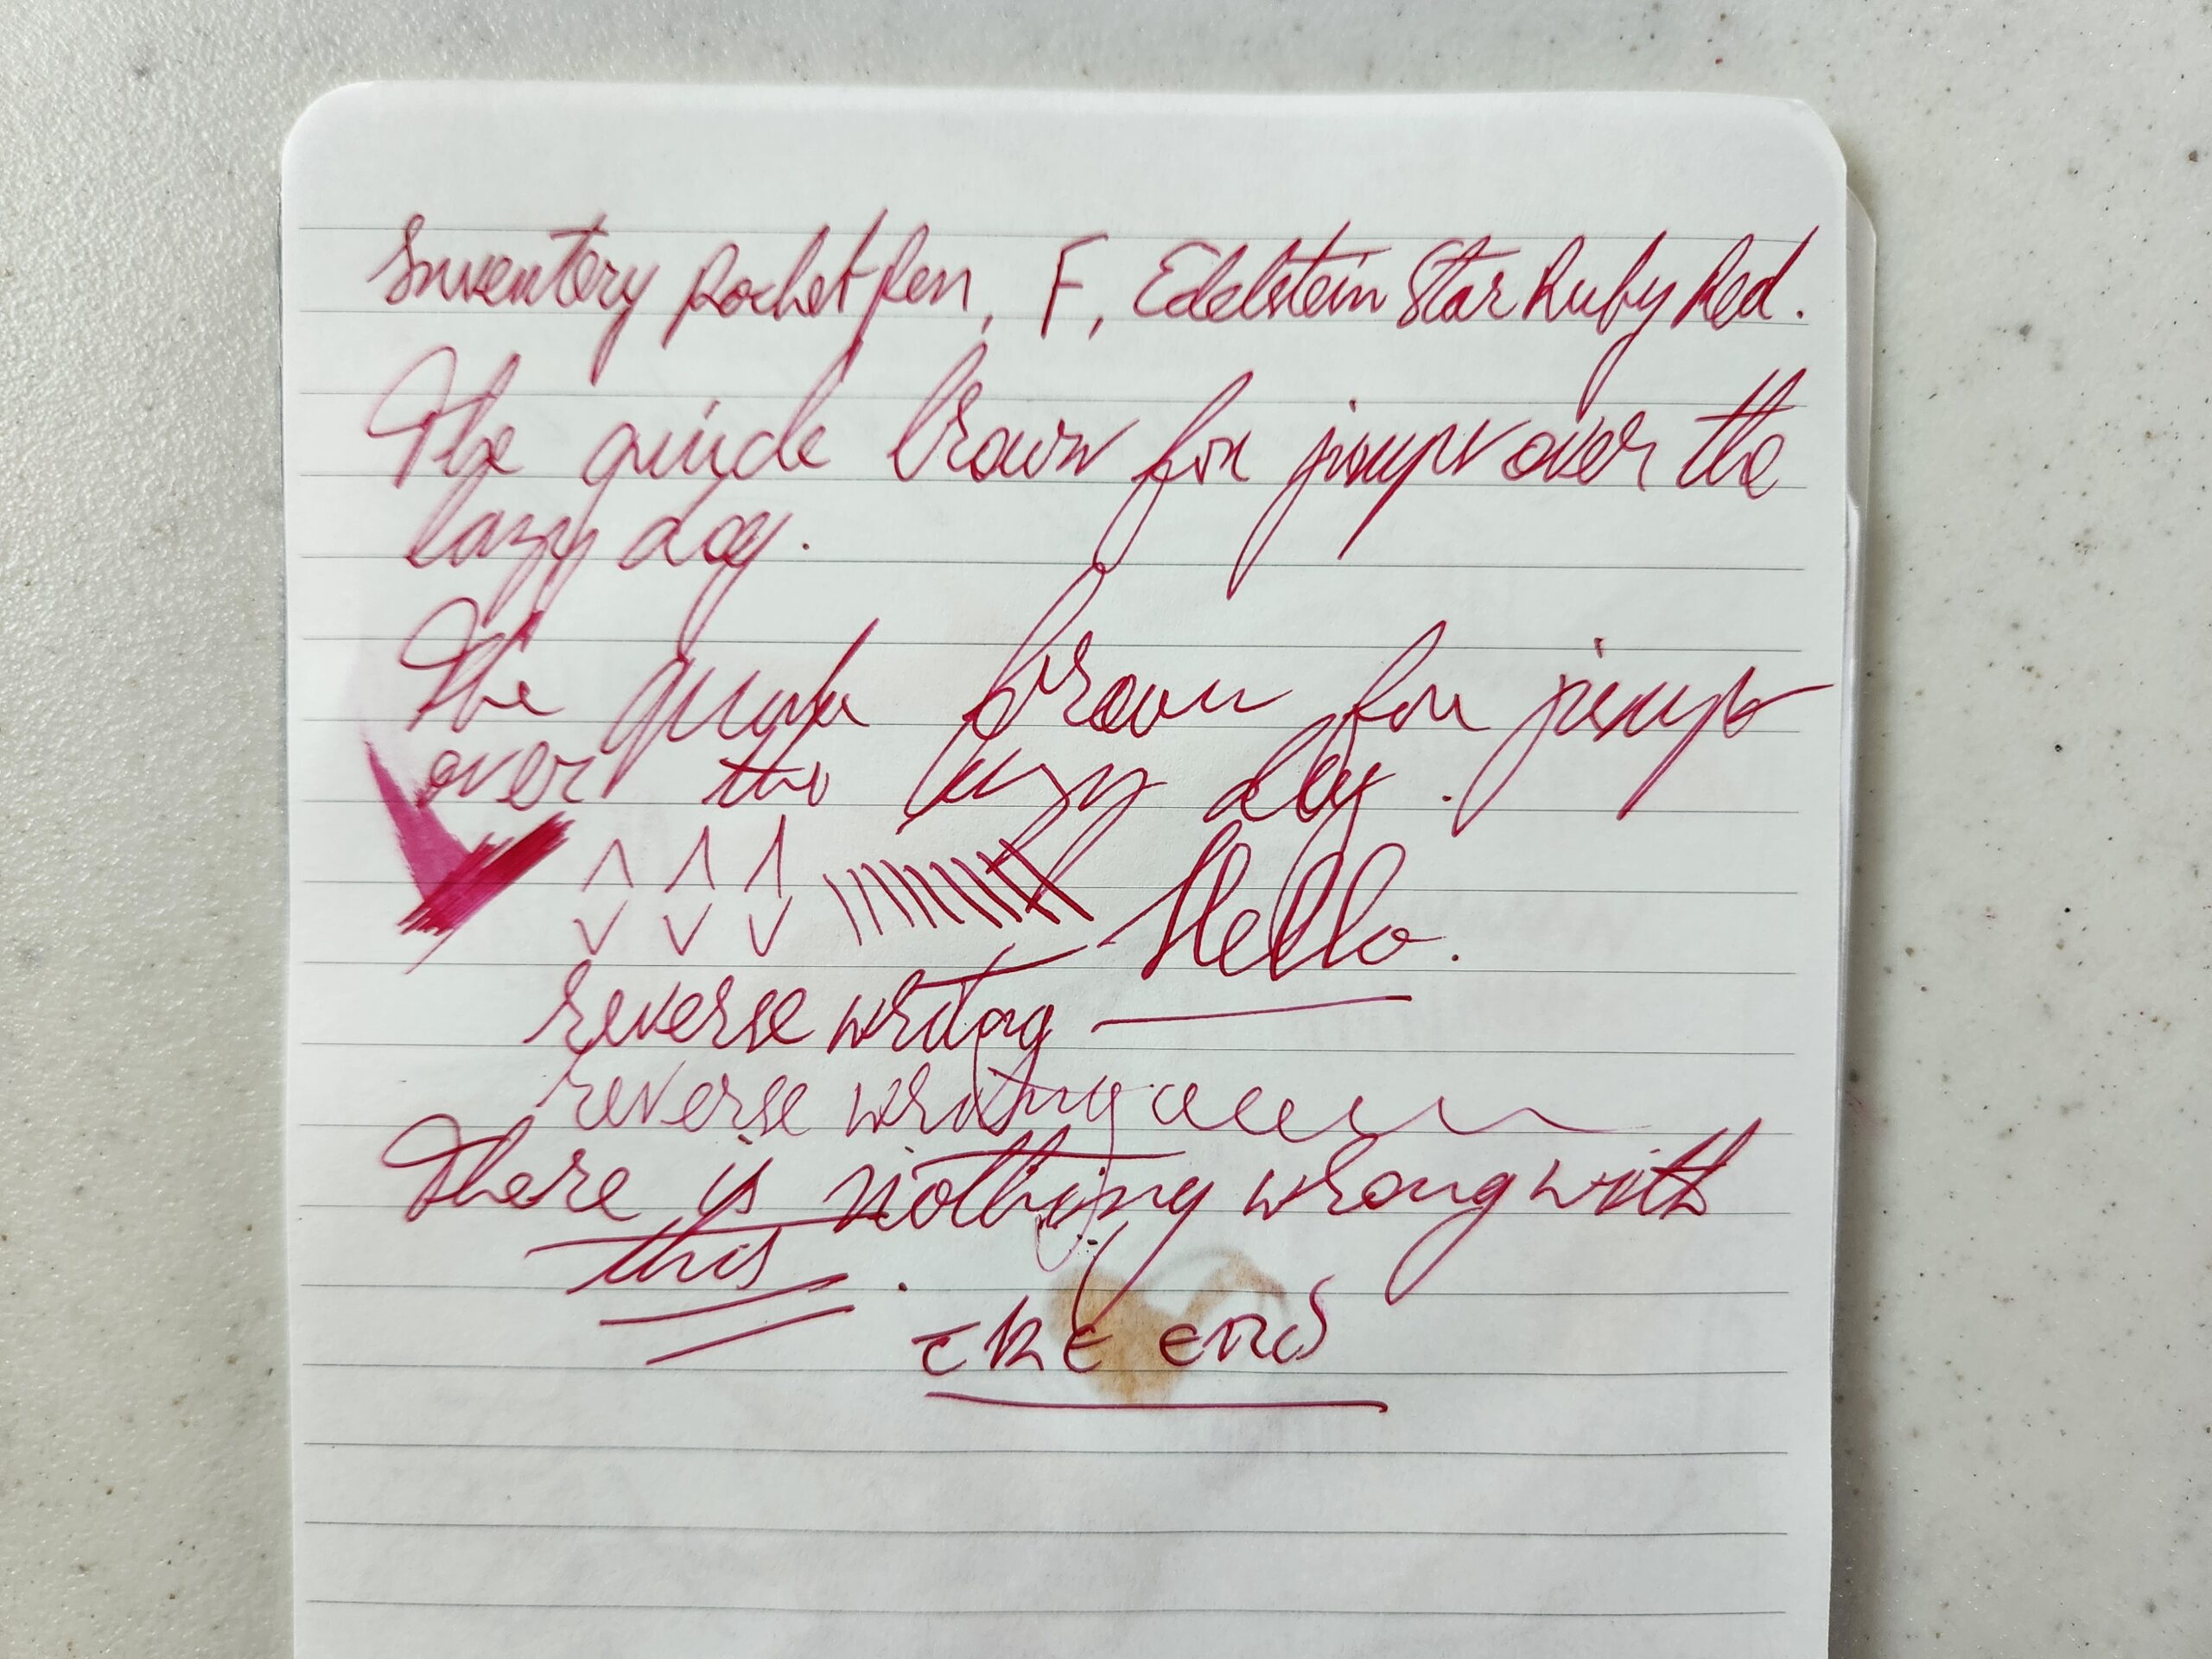 Inventory Pocket Pen, F, Edelstein Star Ruby Red.
The quick brown fox jumps over the
lazy dog.
The quick brown fox jumps
over the lazy dog.
Hello.
reverse writing
reverse writing
There is nothing wrong with
this.
the end